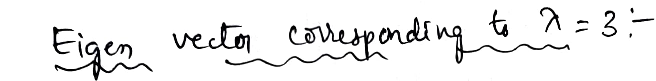 Eigen vector corresponding to λ = 3 :-